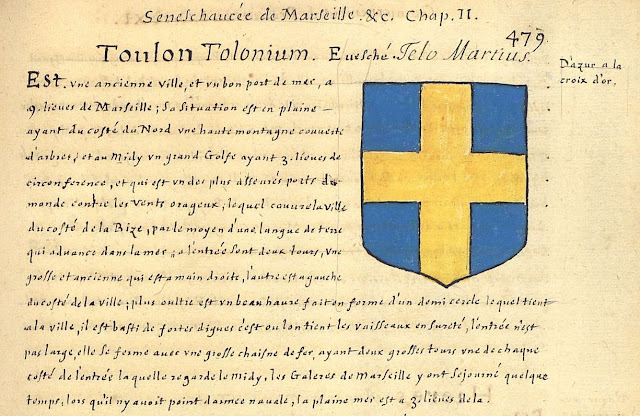 Seneschaucée de Marseille. &c. Chap. II.
479
Toulon Tolonium. Euesché. Telo Martius.
D'azur a la
croix d'or.
Est. vne ancienne ville, et vn bon port de mer, a
9. lieues de Marseille; sa situation est en plaine
ayant du costé du Nord vne haute montagne couuerte
d'arbres; et au Midy vn grand Golfe ayant 3. lieues de
circonference, et qui est vn des plus asseurés ports du
monde contre les vents orageux; lequel couure la ville
du costé de la Bize, par le moyen d'une langue de terre
qui aduance dans la mer; a l'entrée sont deux tours, vne
grosse et ancienne qui est a main droite, l'autre est a gauche
du costé de la ville; plus oultre est vn beau haure fait en forme d'un demi cercle lequel tient
a la ville, il est basti de fortes digues c'est ou lon tient les vaisseaux en sureté, l'entrée n'est
pas large, elle se ferme avec vne grosse chaisne de fer, ayant deux grosses tours vne de chaque
costé de l'entrée laquelle regarde le Midy, les Galeres de Marseille y ont sejourné quelque
temps, lors qu'il ny avoit point darmee navale, la plaine mer est a 3. lieues de la.